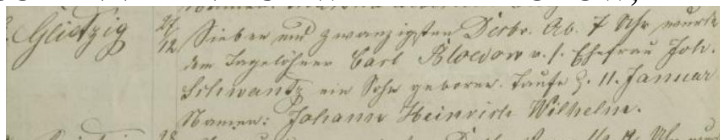 Glietzig 27/12 Sieben und zwanzigsten Decbr. Ab. 7 Uhr wurde
dem Tagelöhner Carl Bloedow v. s. Ehefrau Joh.
Schwantz ein Sohn geboren. Taufe d. 11. Januar
Namen: Johann Heinrich Wilhelm.